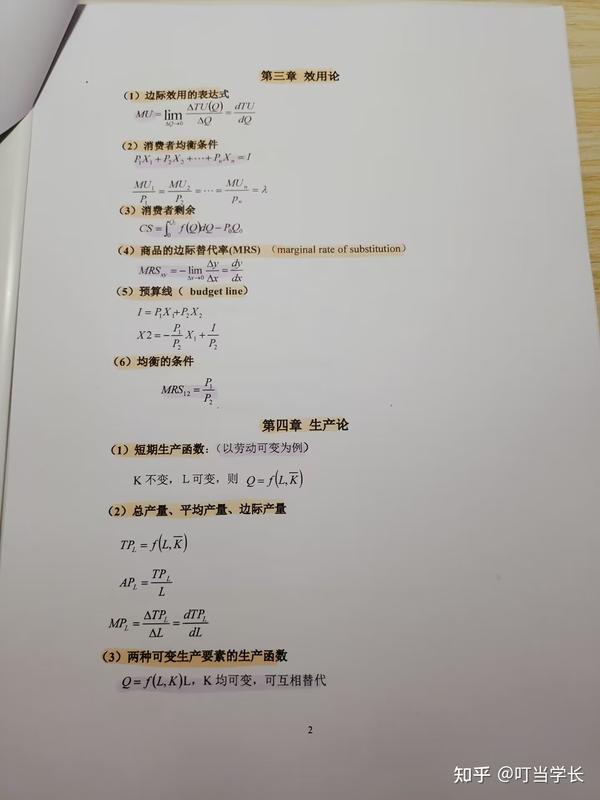 第三章 效用论
(1)边际效用的表达式
MU = lim ΔQ→0 ΔTU(Q)/ΔQ = dTU/dQ
(2)消费者均衡条件
P₁X₁ + P₂X₂ + ⋯ + PₙXₙ = I
MU₁/P₁ = MU₂/P₂ = ⋯ = MUₙ/pₙ = λ
(3)消费者剩余
CS = ∫₀^Q₀ f(Q)dQ − P₀Q₀
(4)商品的边际替代率(MRS)(marginal rate of substitution)
MRSxy = − lim Δx→0 Δy/Δx = dy/dx
(5)预算线( budget line)
I = P₁X₁+P₂X₂
X2 = −P₁/P₂ X₁ + I/P₂
(6)均衡的条件
MRS₁₂ = P₁/P₂
第四章 生产论
(1)短期生产函数:(以劳动可变为例)
K 不变,L 可变,则 Q = f(L, K̅)
(2)总产量、平均产量、边际产量
TP_L = f(L, K̅)
AP_L = TP_L/L
MP_L = ΔTP_L/ΔL = dTP_L/dL
(3)两种可变生产要素的生产函数
Q = f(L, K)L,K 均可变,可互相替代
2
知乎 @叮当学长